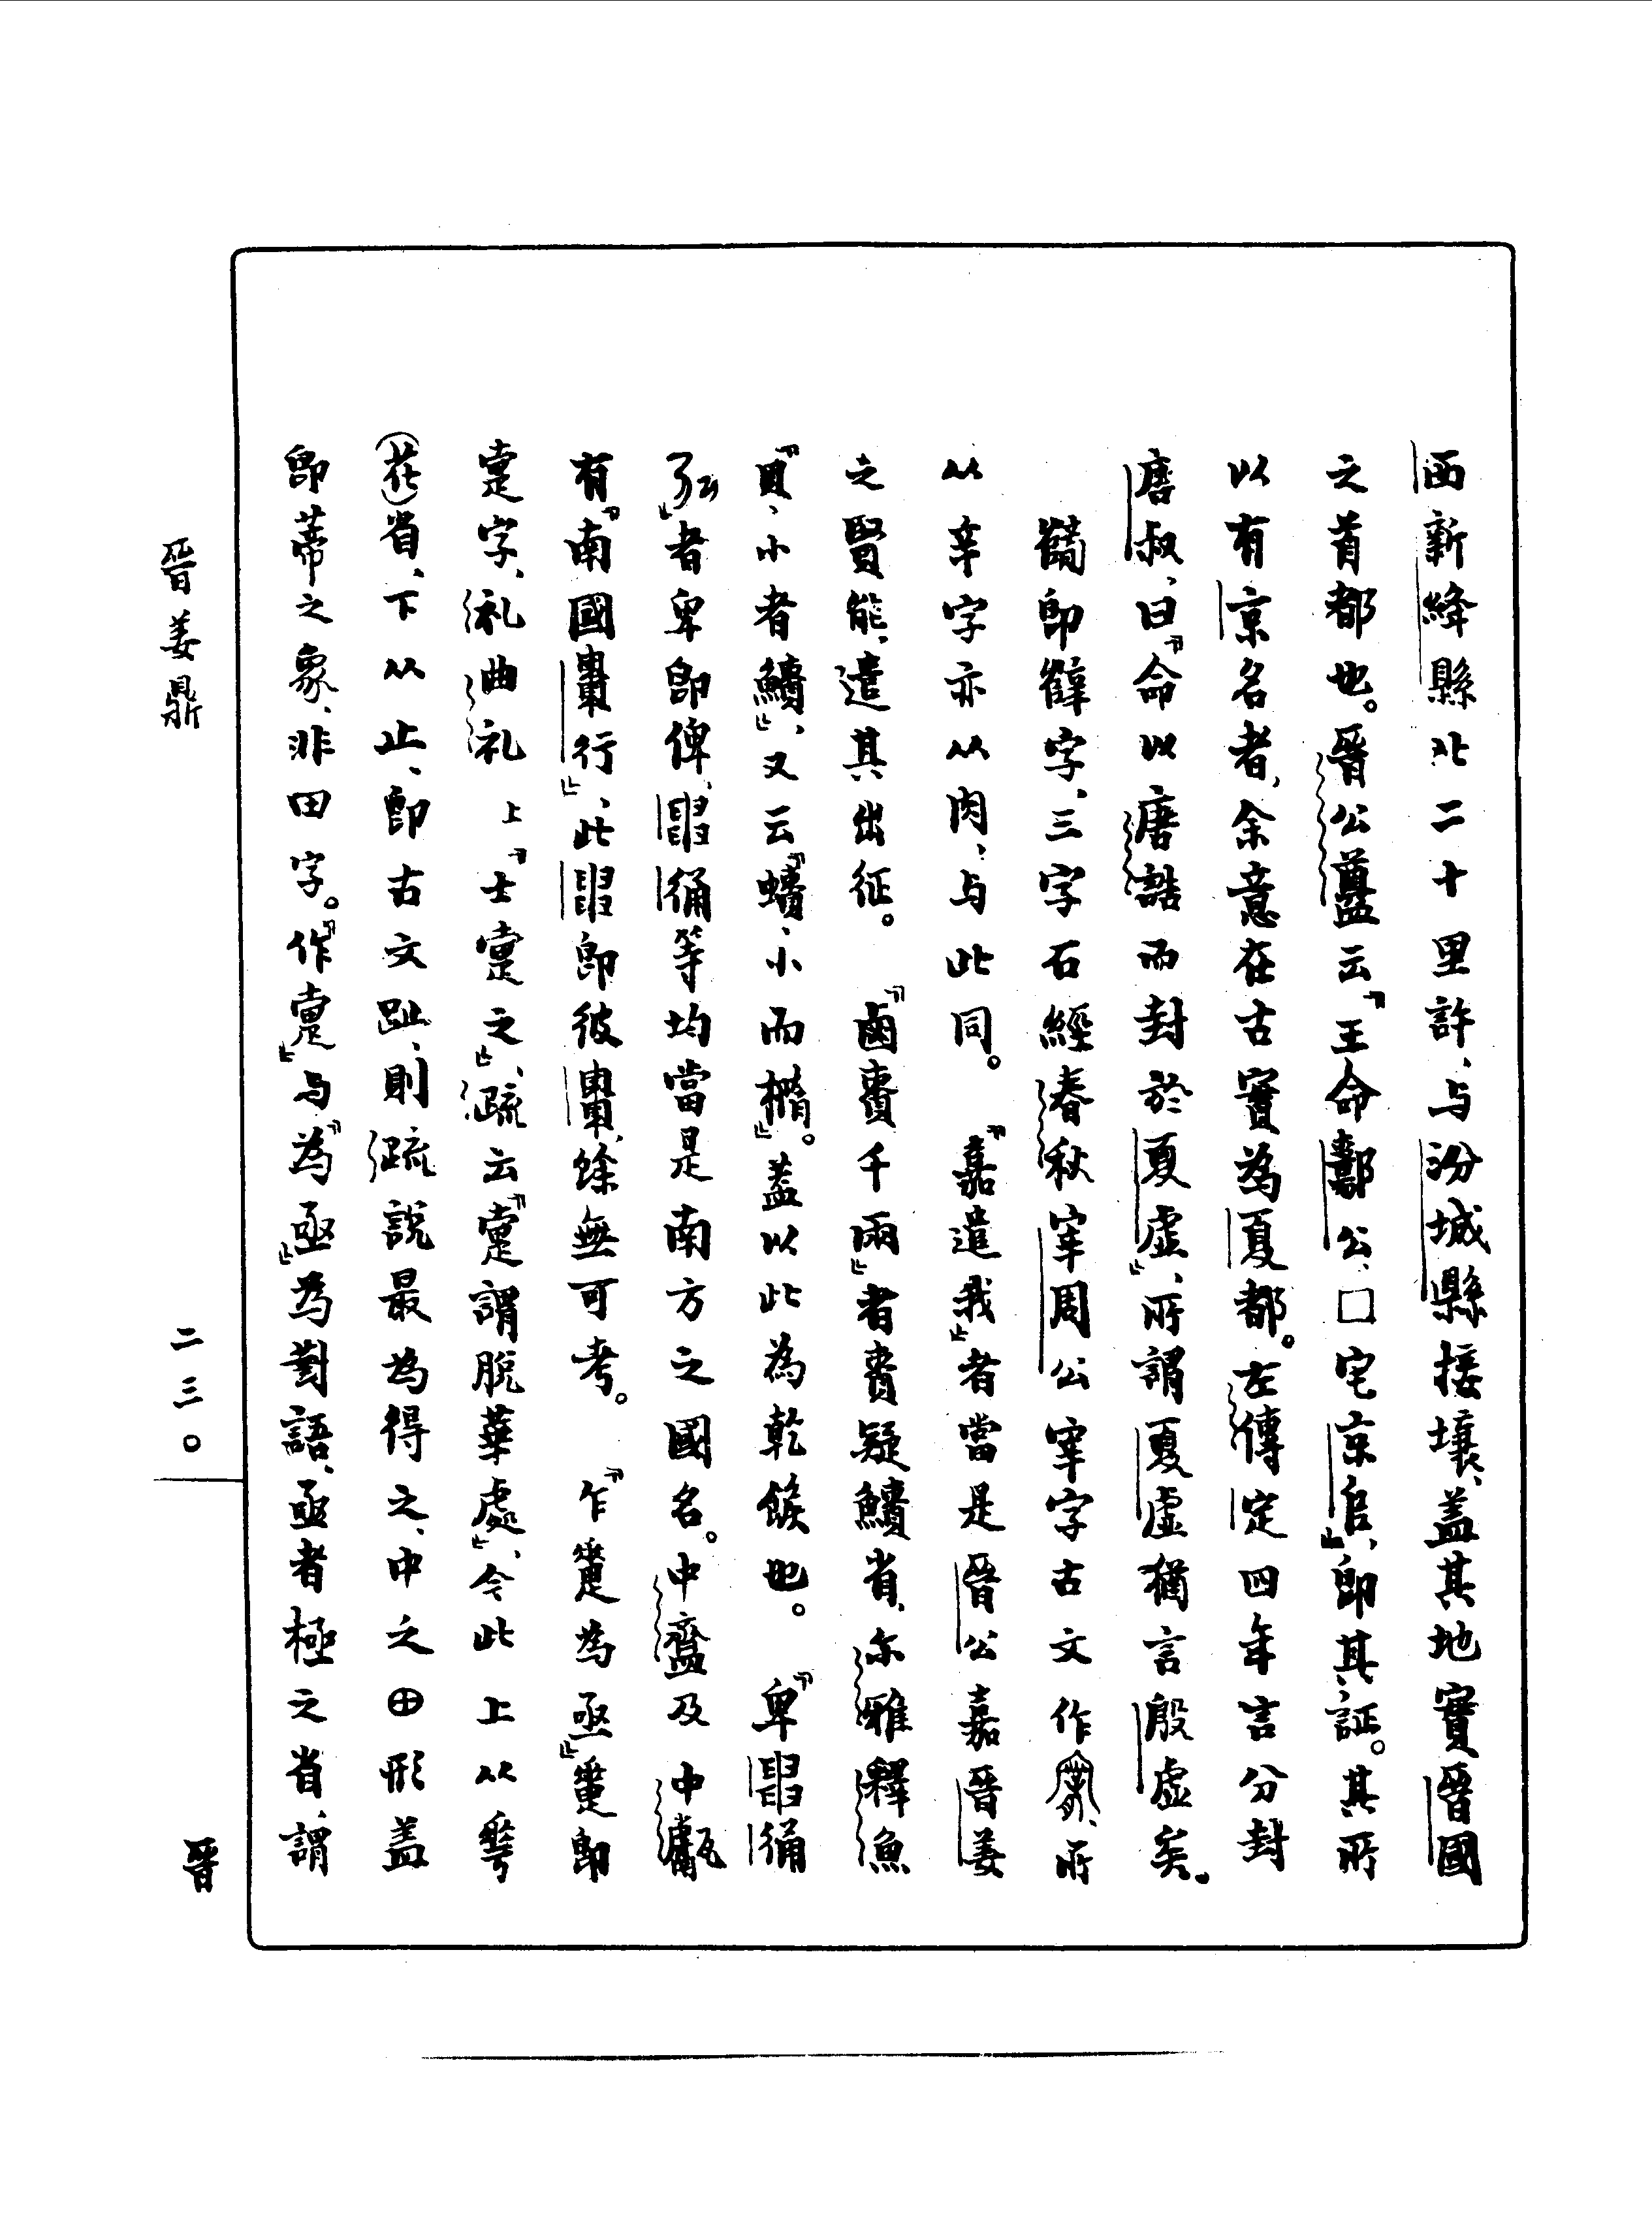 西新絳縣北二十里許、与汾城縣接壤、蓋其地實晉國
之首都也。晉公𥂴云『王命鄩公、□宅京𠂤』、即其証。其所
以有京名者、余意在古實為夏都。左傳定四年言分封
唐叔、曰『命以唐誥而封於夏虛』、所謂夏虛猶言殷虛矣。
即字、三字石經春秋宰周公宰字古文作、所
从辛字亦从肉、与此同。『嘉遣我』者當是晉公嘉晉姜
之賢能、遣其出征。『鹵賷千兩』者賷疑鱭省、尔雅釋魚
『貝、小者鰿』、又云『蟦、小而橢』。蓋以此為乾餱也。『卑
』者卑即俾、等均當是南方之國名。中齍及中甗
有『南國行』、此即彼、餘無可考。『乍疐為亟』疐即
疐字、礼曲礼上『士疐之』、疏云『疐謂脫華處』、今此上从
(花)省、下从止、即古文趾、則疏說最為得之、中之⊕形蓋
即蒂之象、非田字。『作疐』与『為亟』為對語、亟者極之省、謂
晉姜鼎
二三〇
晉